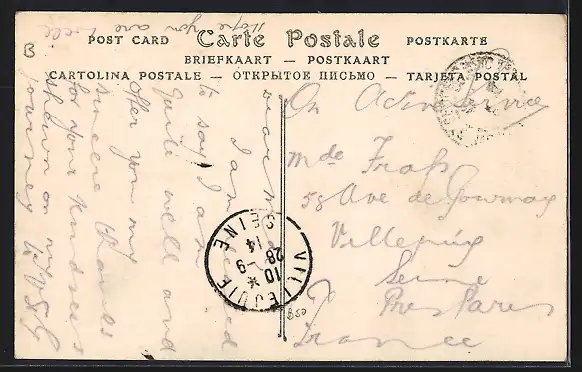 Hope
you are well
B
POST CARD Carte Postale POSTKARTE
BRIEFKAART — POSTKAART
CARTOLINA POSTALE — ОТКРЫТОЕ ПИСЬМО — TARJETA POSTAL
Dear
I am
to say I am
quite well and
offer you my
sincere thanks
for your kindness
shown on my
journey
On Active Service
Mde
58 Ave de Gournay
Seine
Pres Paris
France
VILLEJUIF
10 * -9
28
14
SEINE
B50